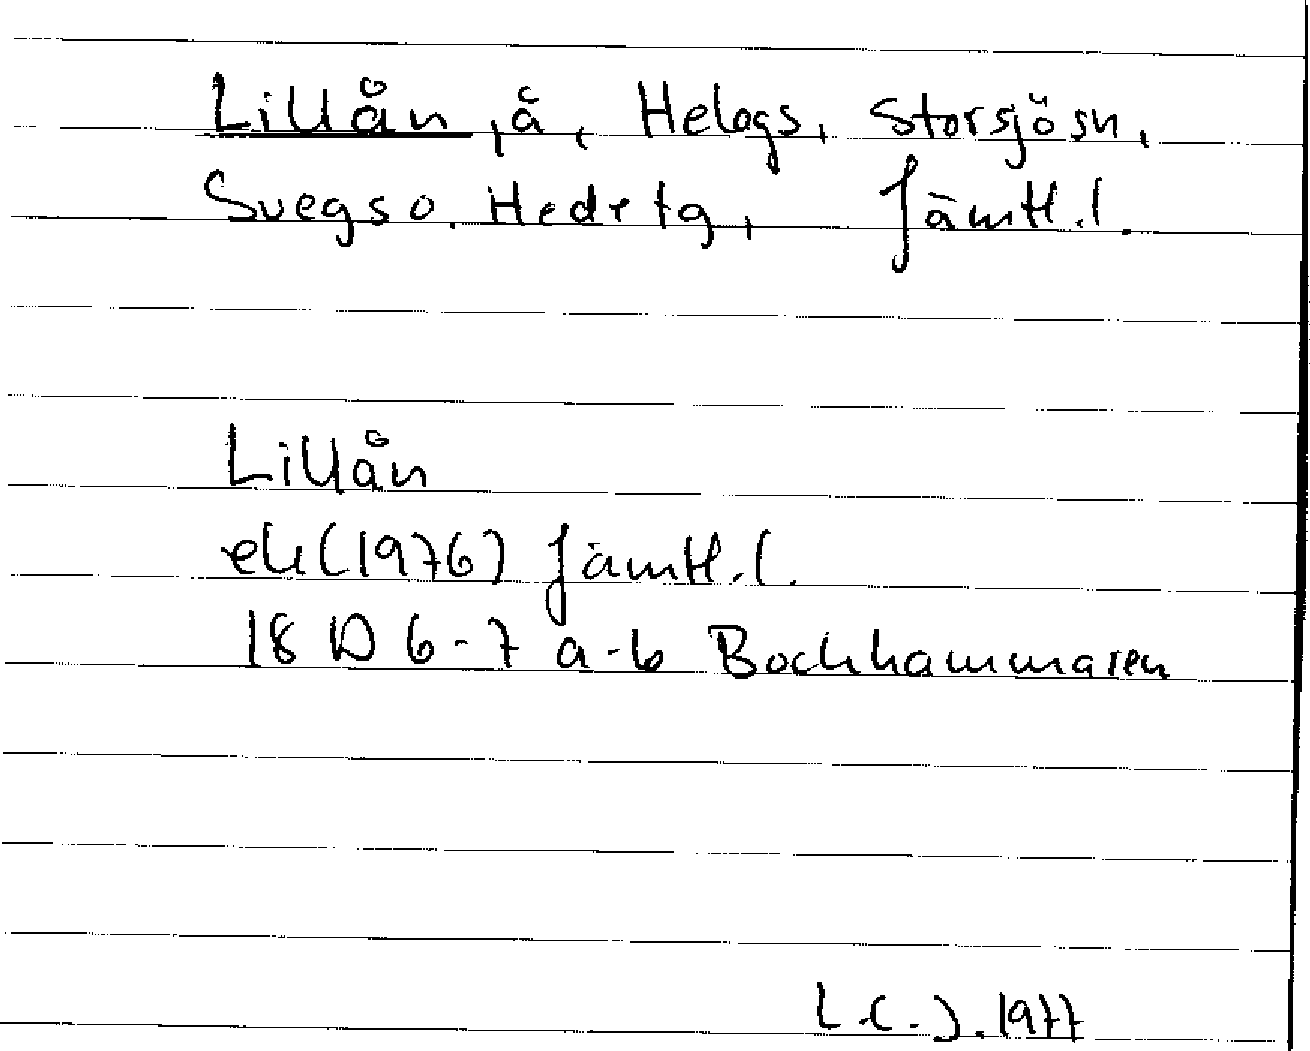 Lillån, å, Helags, Storsjö sn,
Svegs o. Hede tg, Jämtl. l.
Lillån
ek (1976) Jämtl. l.
18 D 6-7 a-b Bockhammaren
L.C.J. 1977